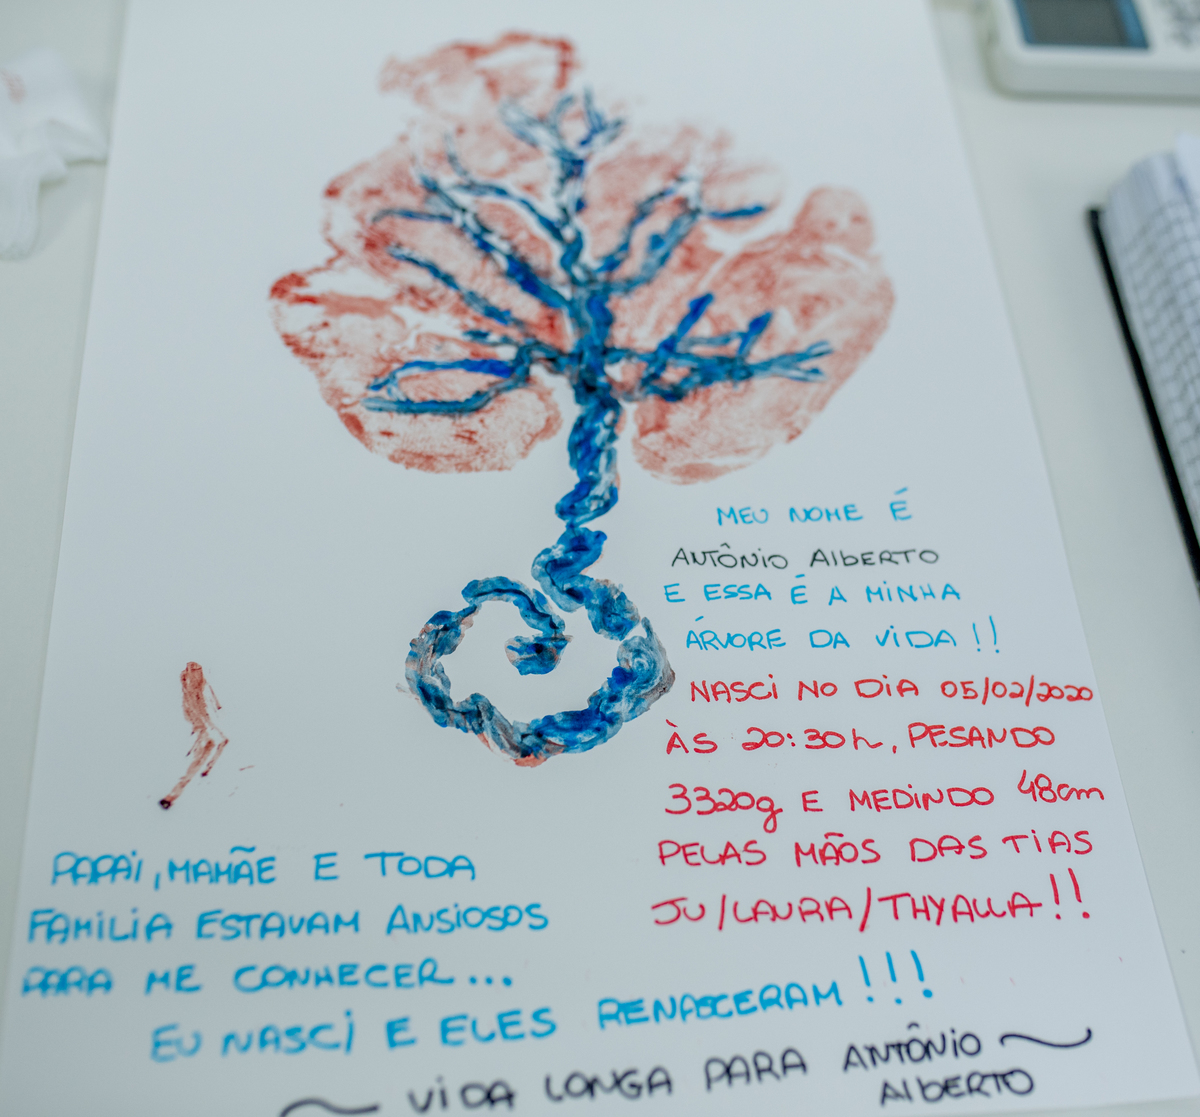 MEU NOME É
ANTÔNIO AlbERTO
E ESSA É A MiNHA
ÁRVORE DA ViDA!!
NASCi NO DiA 05/02/2020
ÀS 20:30h, PESANDO
3320g E MEDiNDO 48cm
PELAS MÃOS DAS TiAS
JU/LAURA/THYALLA!!
PAPAi, MAMÃE E TODA
FAMiLiA ESTAVAM ANSiOSOS
PARA ME CONHECER...
EU NASCi E ELES RENASCERAM!!!
~ ViDA LONGA PARA ANTÔNIO ~
AlbERTO